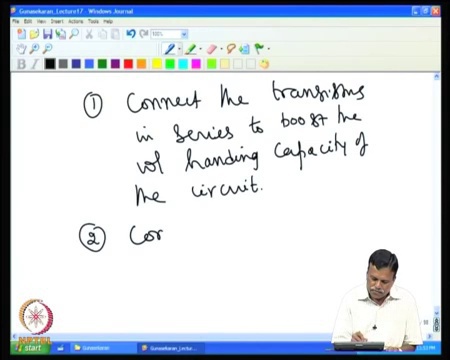 Gunasekaran_Lecture17 - Windows Journal
File Edit View Insert Actions Tools Help
100%
B I
① Connect the transistors
in series to boost the
vol handing capacity of
the circuit.
② Con
start
Gunasekaran
Gunasekaran_Lectu...